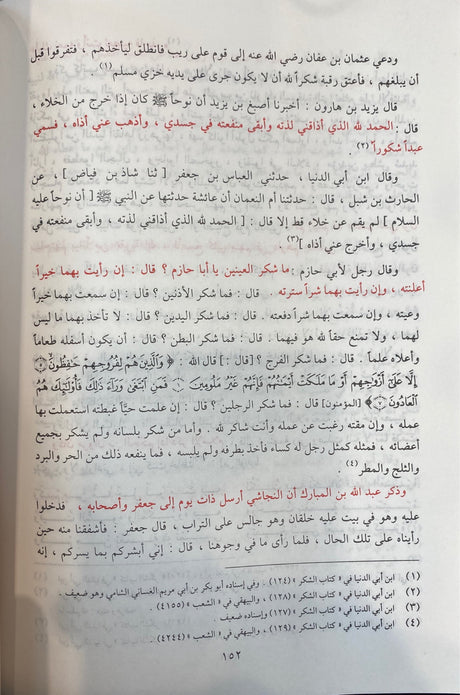 ودعي عثمان بن عفان رضي الله عنه إلى قوم على ريب فانطلق ليأخذهم ، فتفرقوا قبل
أن يبلغهم ، فأعتق رقبة شكراً لله أن لا يكون جرى على يديه خزي مسلم (١) .
قال يزيد بن هارون : أخبرنا أصبغ بن يزيد أن نوحاً ﷺ كان إذا خرج من الخلاء ،
قال : الحمد لله الذي أذاقني لذته وأبقى منفعته في جسدي ، وأذهب عني أذاه ، فسمي
عبداً شكوراً (٢) .
وقال ابن أبي الدنيا ، حدثني العباس بن جعفر [ ثنا شاذ بن فياض ] ، عن
الحارث بن شبل ، قال : حدثتنا أم النعمان أن عائشة حدثتها عن النبي ﷺ [ أن نوحاً عليه
السلام ] لم يقم عن خلاء قط إلا قال : [ الحمد لله الذي أذاقني لذته ، وأبقى منفعته في
جسدي ، وأخرج عني أذاه ] (٣) .
وقال رجل لأبي حازم : ما شكر العينين يا أبا حازم ؟ قال : إن رأيت بهما خيراً
أعلنته ، وإن رأيت بهما شراً سترته . قال : فما شكر الأذنين ؟ قال : إن سمعت بهما خيراً
وعيته ، وإن سمعت بهما شراً دفعته . قال : فما شكر اليدين ؟ قال : لا تأخذ بهما ما ليس
لهما ، ولا تمنع حقاً لله هو فيهما . قال : فما شكر البطن ؟ قال : أن يكون أسفله طعاماً
وأعلاه علماً . قال : فما شكر الفرج ؟ [قال :] قال الله : ﴿ وَالَّذِينَ هُمْ لِفُرُوجِهِمْ حَافِظُونَ ٥
إِلَّا عَلَىٰ أَزْوَاجِهِمْ أَوْ مَا مَلَكَتْ أَيْمَانُهُمْ فَإِنَّهُمْ غَيْرُ مَلُومِينَ ٦ فَمَنِ ابْتَغَىٰ وَرَاءَ ذَٰلِكَ فَأُولَٰئِكَ هُمُ
الْعَادُونَ ٧ ﴾ [المؤمنون] قال : فما شكر الرجلين ؟ قال : إن علمت حيّاً غبطته استعملت بها
عمله ، وإن مقته رغبت عن عمله وأنت شاكر لله . وأما من شكر بلسانه ولم يشكر بجميع
أعضائه ، فمثله كمثل رجل له كساء فأخذ بطرفه ولم يلبسه ، فما ينفعه ذلك من الحر والبرد
والثلج والمطر (٤) .
وذكر عبد الله بن المبارك أن النجاشي أرسل ذات يوم إلى جعفر وأصحابه ، فدخلوا
عليه وهو في بيت عليه خلقان وهو جالس على التراب ، قال جعفر : فأشفقنا منه حين
رأيناه على تلك الحال ، فلما رأى ما في وجوهنا ، قال : إني أبشركم بما يسركم ، إنه
(١) ابن أبي الدنيا في « كتاب الشكر » (١٢٤) . وفي إسناده أبو بكر بن أبي مريم الغساني الشامي وهو ضعيف .
(٢) ابن أبي الدنيا في « كتاب الشكر » (١٢٨) ، والبيهقي في « الشعب » (٤١٥٥) .
(٣) ابن أبي الدنيا في « كتاب الشكر » (١٢٧) وإسناده ضعيف .
(٤) ابن أبي الدنيا في « كتاب الشكر » (١٢٩) ، والبيهقي في « الشعب » (٤٢٤٤) .
١٥٢